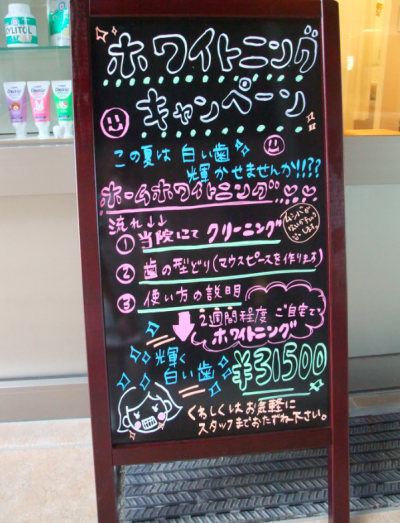 XYLITOL
ホワイトニング
キャンペーン
この夏は 白い歯
輝かせませんか!!??
ホームホワイトニング
流れ↓↓
① 当院にて クリーニング
② 歯の型どり(マウスピースを作ります)
③ 使い方の説明
2週間程度 ご自宅で
ホワイトニング
輝く
白い歯
¥31500
くわしくはお気軽に
スタッフまでおたずね下さい。